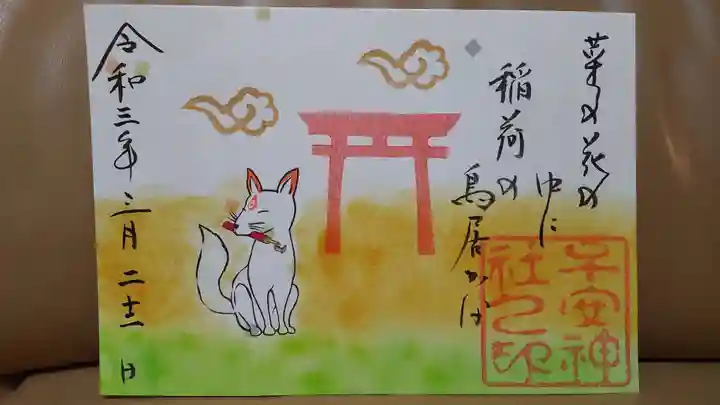 菜の花の
中に
稲荷の
鳥居かな
子安神
社之印
令和三年三月二十二日